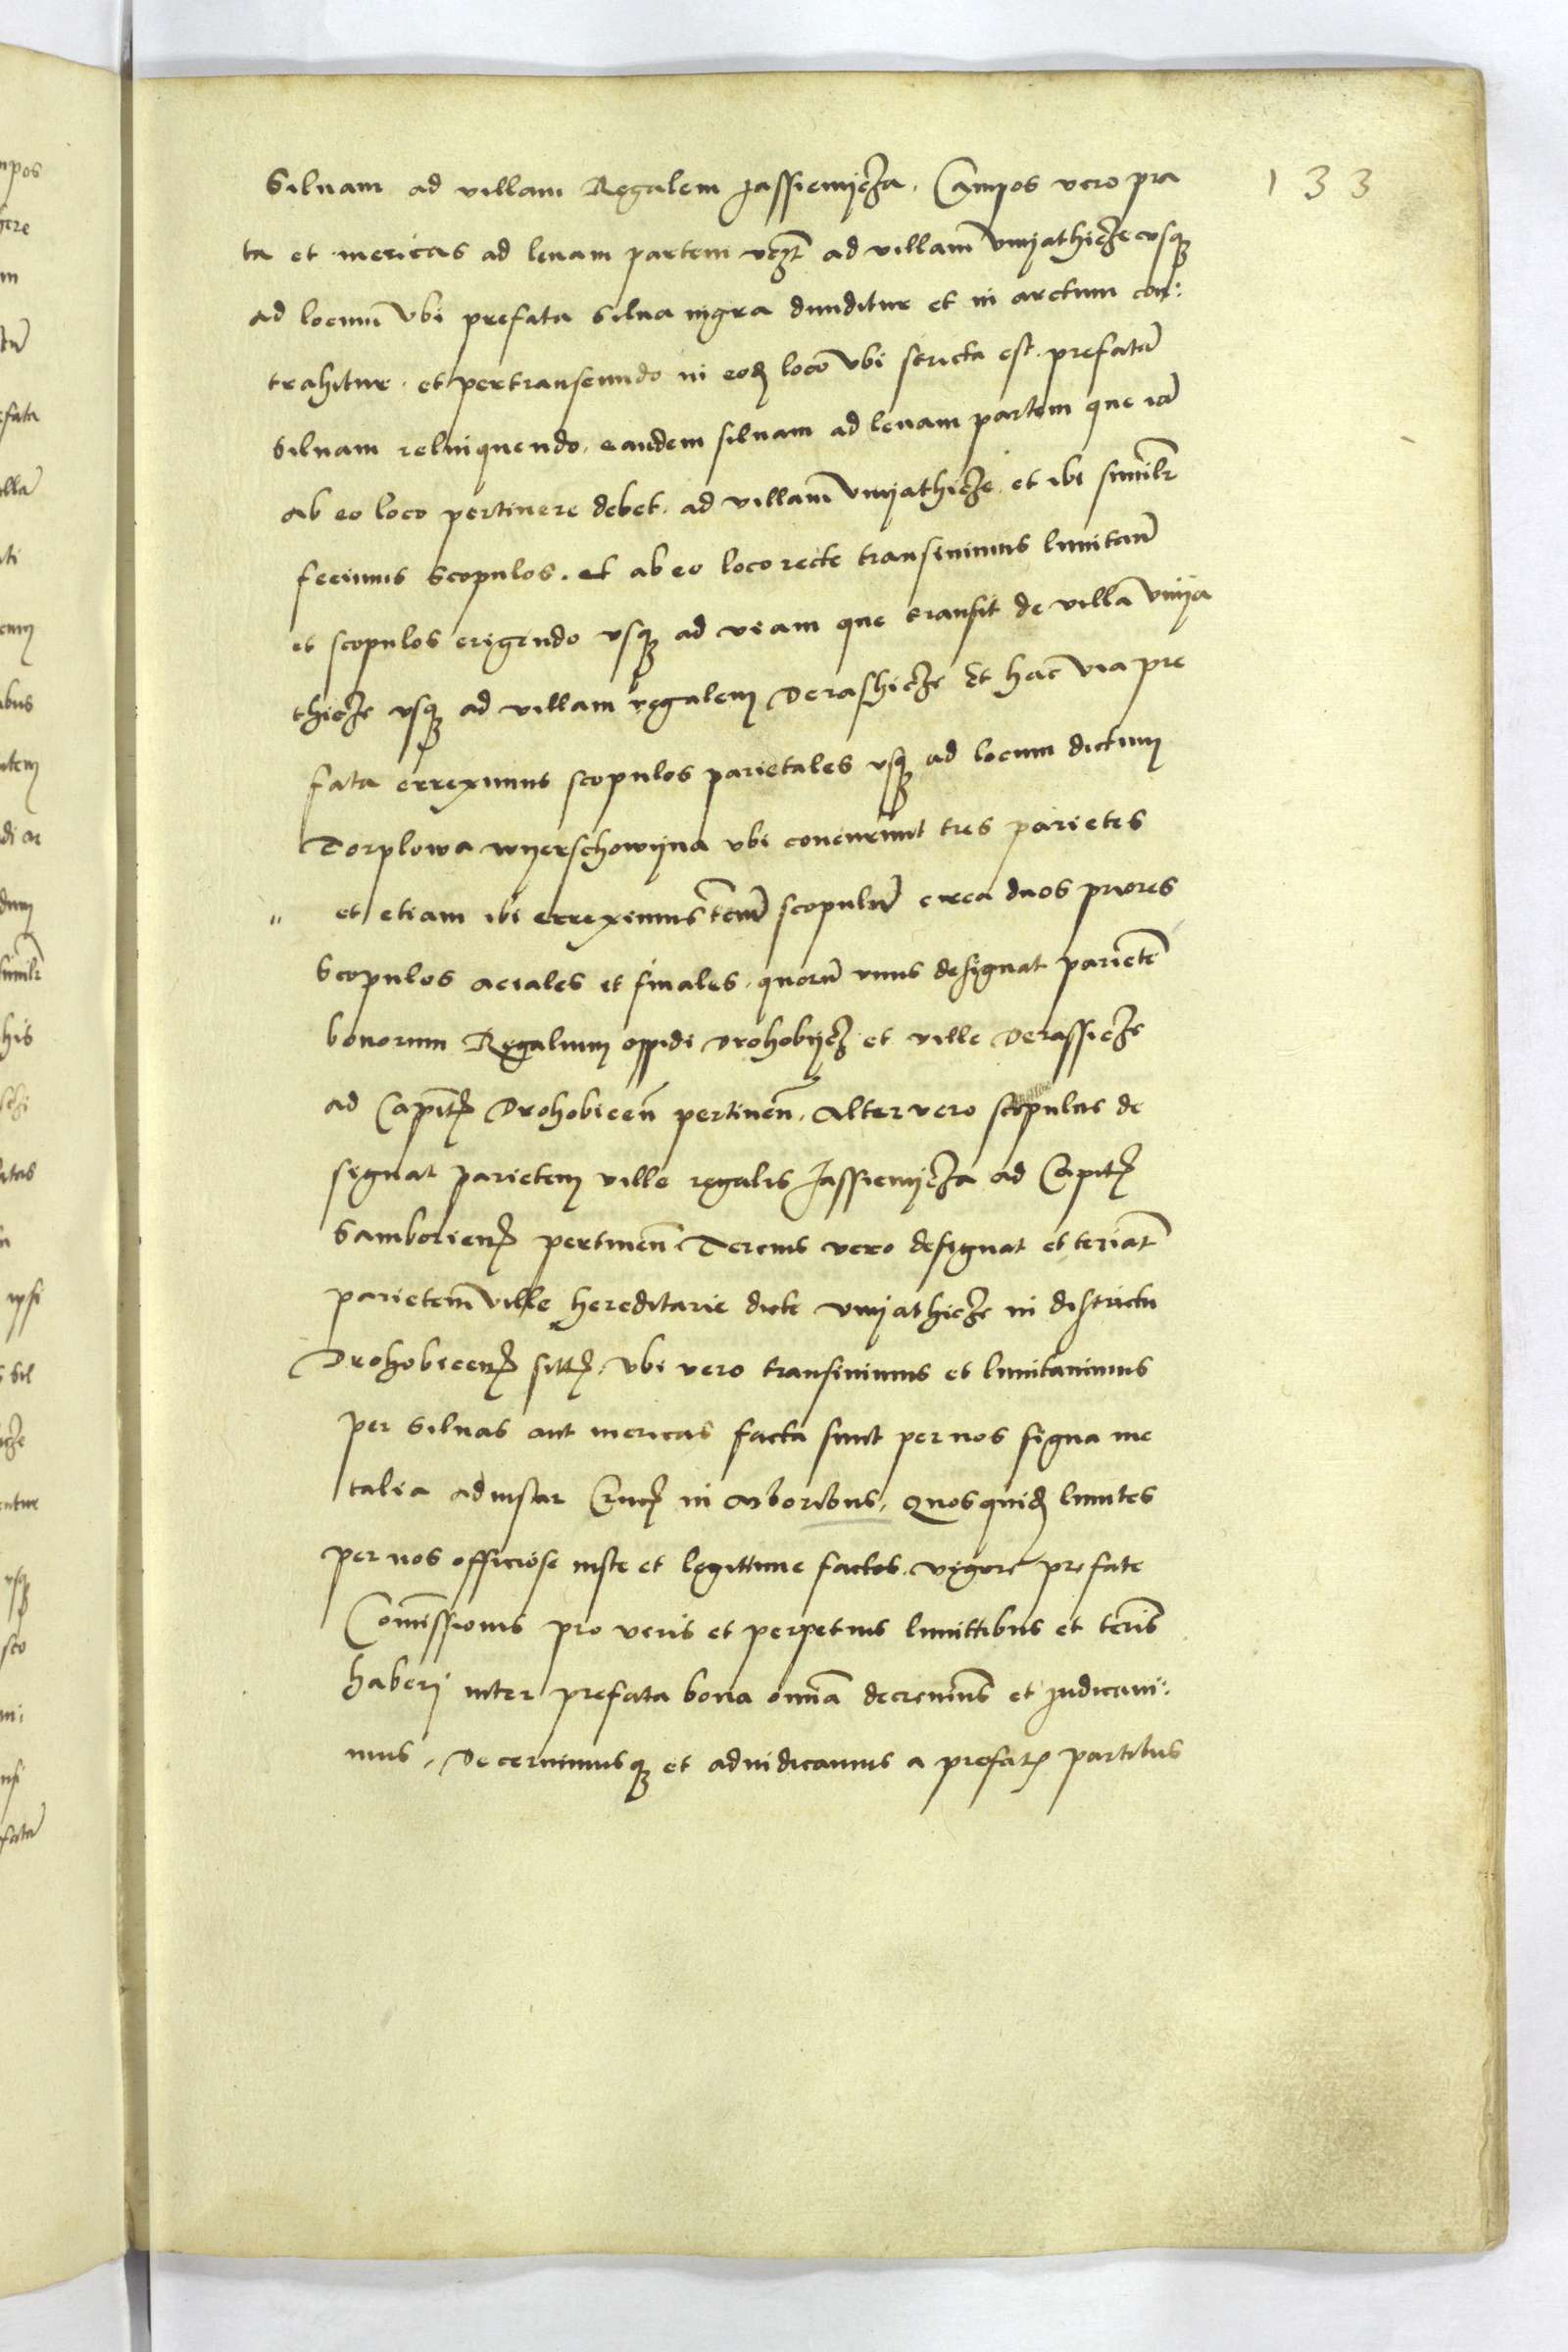 133
Siluam ad villam Regalem Jassiemycza. Campos vero pra
ta et mericas ad leuam partem vczt ad villam vnyathicze vsq
ad locum vbi prefata silua nigra diuiditur et in arctum con:
trahitur. et pertranseundo in eod loco vbi stricta est. prefatā
Siluam relinquendo. eandem siluam ad leuam partem que iā
ab eo loco pertinere debet. ad villam vnyathicze et ibi similr
fecimus scopulos. et ab eo loco recte transiuimus limitanđ
et scopulos erigendo vsq ad viam que transit de villa vnya
thicze vsq ad villam regalem Derashicze Et hac via pre
fata erreximus scopulos parietales vsq ad locum dictum
Torplowa wyerschowyna vbi concurrunt tres parietes
" et etiam ibi erreximus terciū scopulū circa duos priores
Scopulos aciales et finales. quorū vnus designat parietē
bonorum Regalium oppidi Drohobycz et ville Derassicze
ad Capit Drohobiceñ pertineñ. Alter vero scopulus de
signat parietem ville regalis Jassiemycza ad Capit
Samborien pertineñ Tercius vero designat et teriat
parietem ville hereditarie dicte vnyathicze in districtu
Drohobicen sitt. vbi vero transiuimus et limitauimus
per siluas aut mericas facta sunt per nos signa me
talia ad instar Cruc in arboribus. Quos quid limites
per nos officiose iuste et legittime factos. vigore prefate
Comissionis pro veris et perpetuis limittibus et teris
haberj inter prefata bona omnia decreuimus et judicaui:
mus. Decernimusq et adiudicamus a prefat partibus